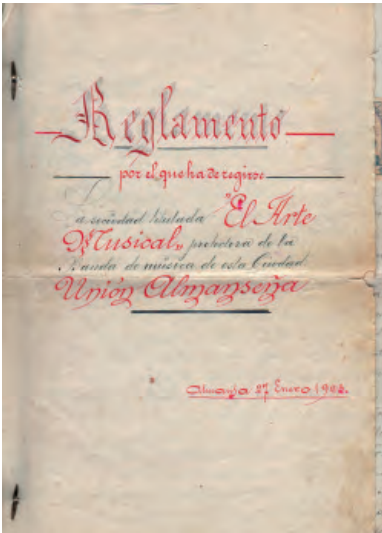 Reglamento
por el que ha de regirse
La sociedad titulada "El Arte
Musical" protectora de la
Banda de música de esta Ciudad
Unión Almanseña
Almansa 27 Enero 1903.